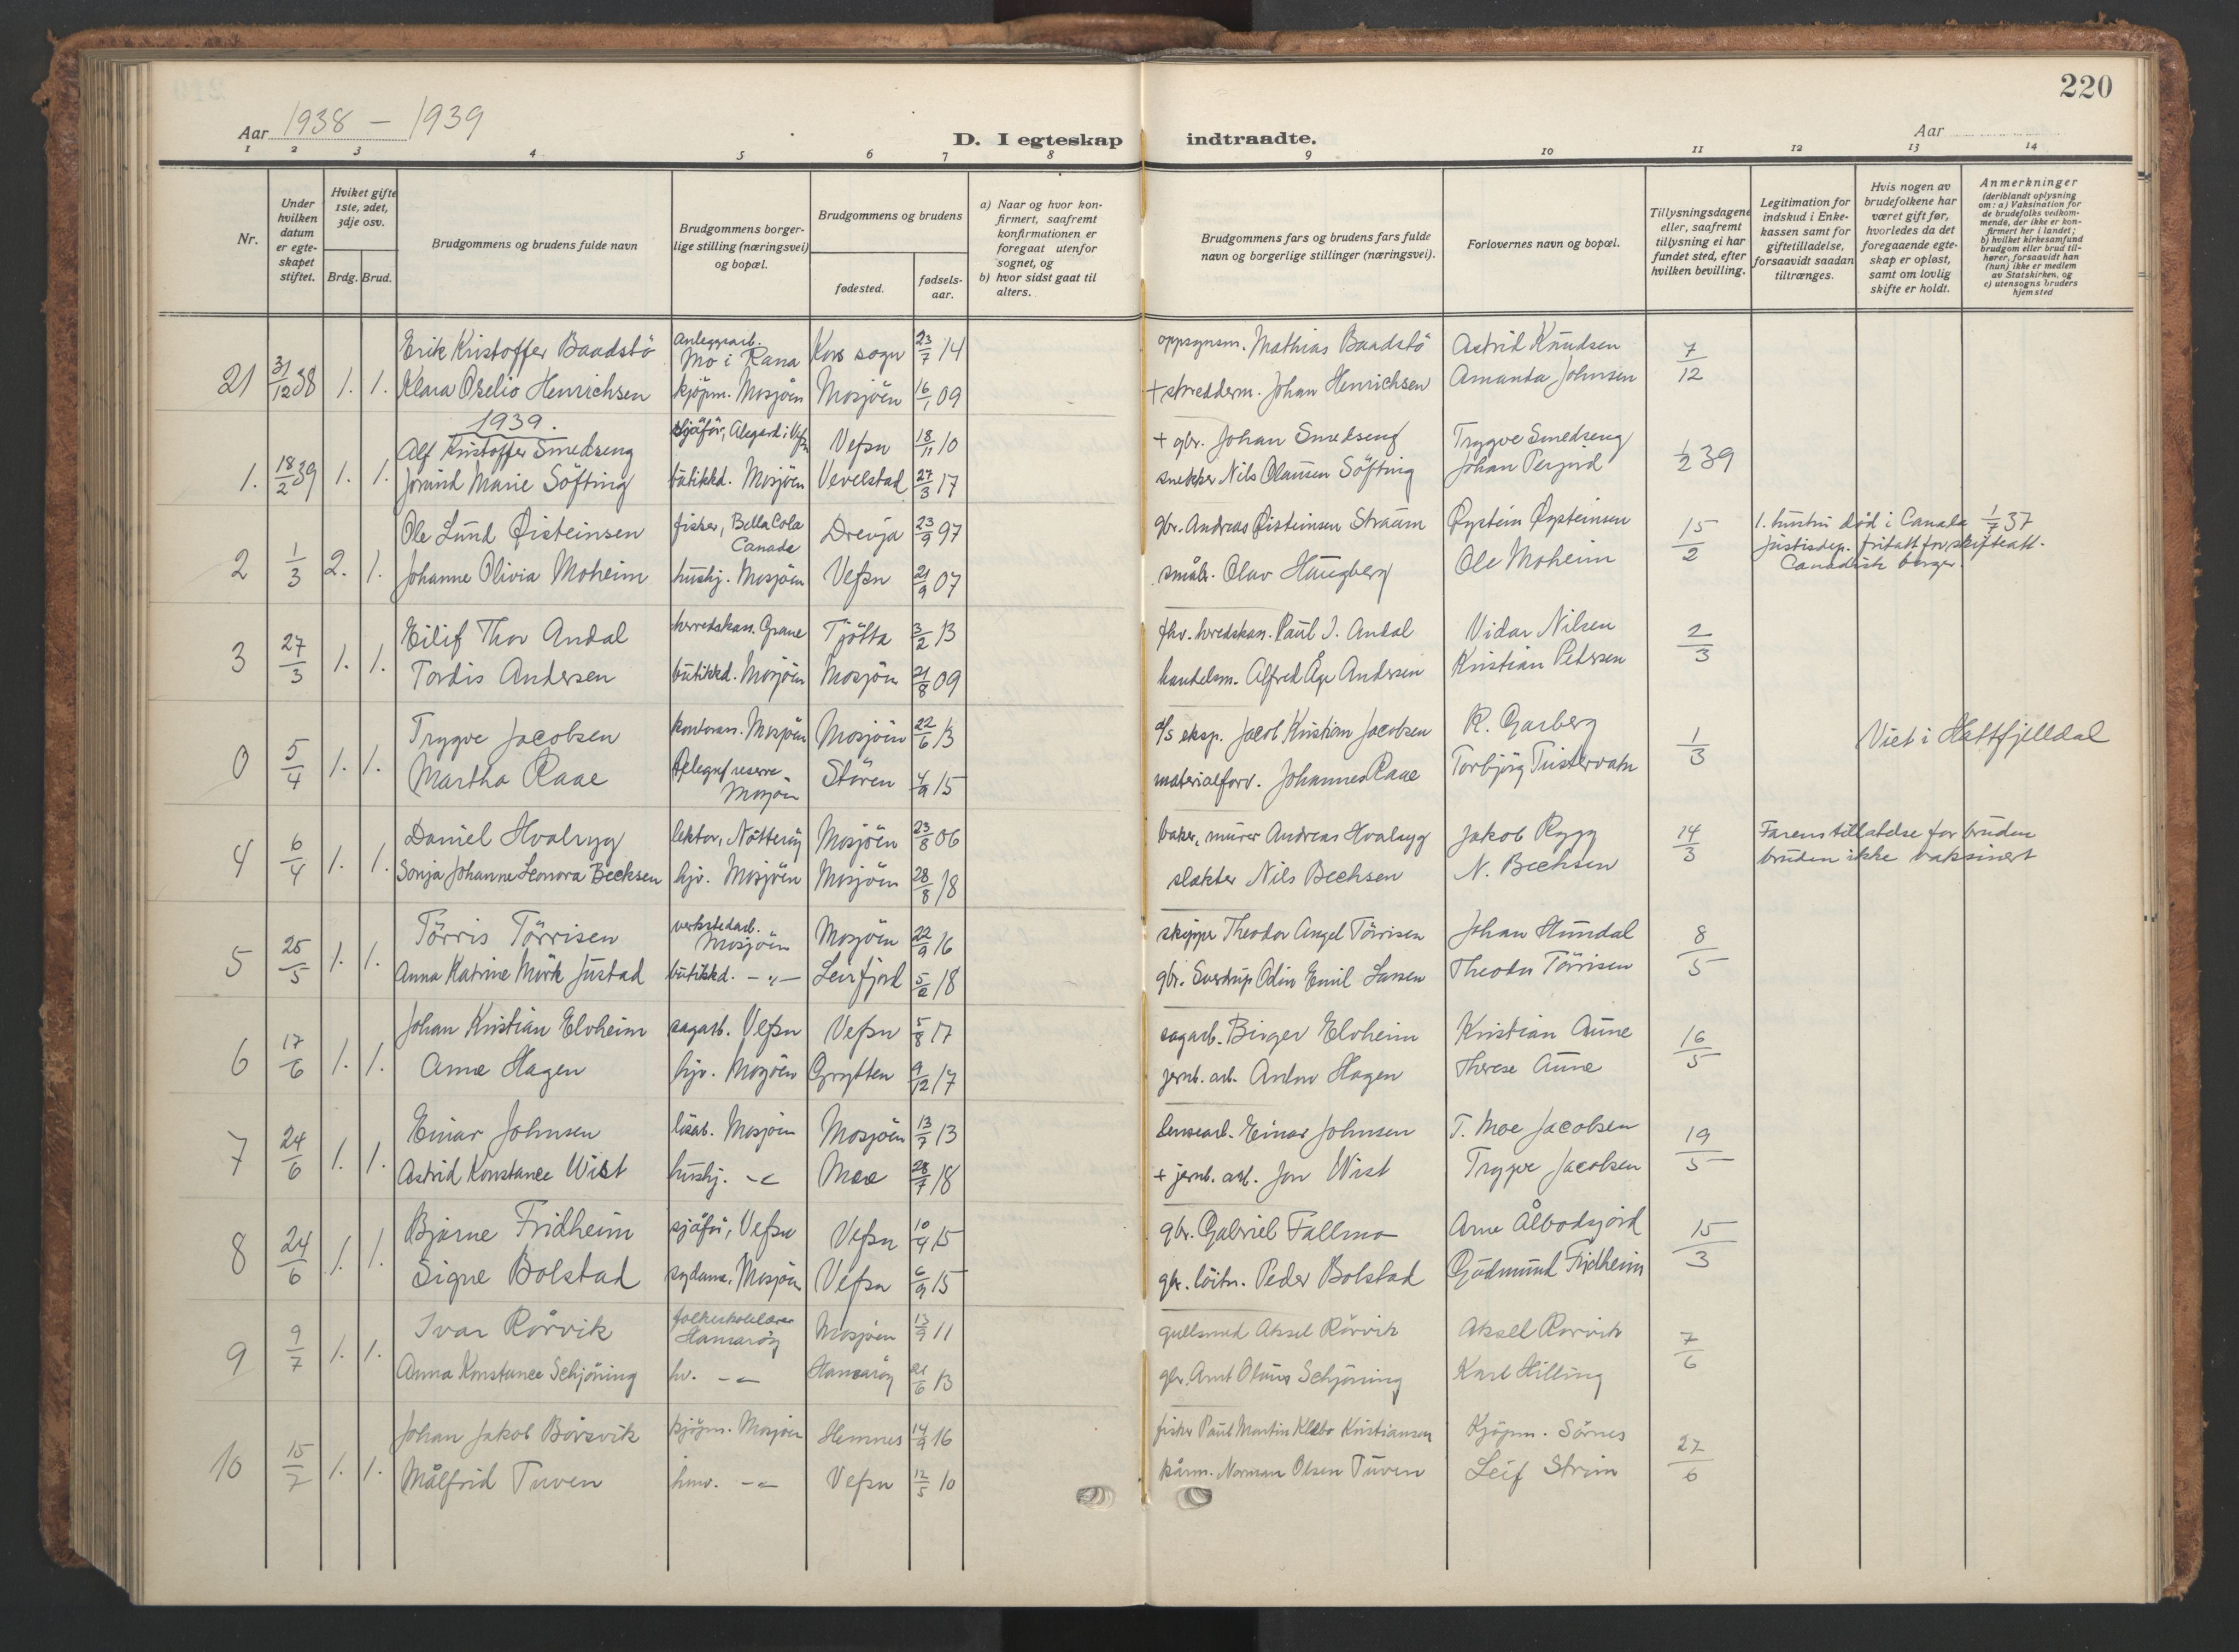 220
Aar 1938 - 1939
D. I egteskap indtraadte.
Aar
1 2 3 4 5 6 7 8 9 10 11 12 13 14
Nr.
Under hvilken datum er egte-skapet stiftet.
Hviket gifte 1ste, 2det, 3dje osv.
Brdg. Brud.
Brudgommens og brudens fulde navn
Brudgommens borger-lige stilling (næringsvei) og bopæl.
Brudgommens og brudens
fødested.
fødsels-aar.
a) Naar og hvor kon-firmert, saafremt konfirmationen er foregaat utenfor sognet, og
b) hvor sidst gaat til alters.
Brudgommens fars og brudens fars fulde navn og borgerlige stillinger (næringsvei).
Forlovernes navn og bopæl.
Tillysningsdagene eller, saafremt tillysning ei har fundet sted, efter hvilken bevilling.
Legitimation for indskud i Enke-kassen samt for giftetilladelse, forsaavidt saadan tiltrænges.
Hvis nogen av brudefolkene har været gift før, hvorledes da det foregaaende egte-skap er opløst, samt om lovlig skifte er holdt.
Anmerkninger (deriblandt oplysning om: a) Vaksination for de brudefolks vedkom-mende, der ikke er kon-firmert her i landet; b) hvilket kirkesamfund brudgom eller brud til-hører, forsaavidt han (hun) ikke er medlem av Statskirken, og c) utensogns bruders hjemsted
21 31/12 38 1. 1. Erik Kristoffer Baadstö Anleggsarb. Mo i Rana Kors sogn 23/7 14 oppsynsm. Mathias Baadstö Astrid Knudsen 7/12
Klara Oselio Henrichsen kjöpm. Mosjöen Mosjöen 16/1 09 + skredderm. Johan Henrichsen Amanda Johnsen
1939.
1. 18/2 39 1. 1. Alf Kristoffer Smedseng sjåför, Alsgard i Vefsn Vefsn 18/11 10 + gbr. Johan Smedseng Trygve Smedseng 1/2 39
Jorund Marie Söfting butikkd. Mosjöen Vevelstad 27/3 17 snekker Nils Olausen Söfting Johan Perjord
2 1/3 2. 1. Ole Lund Øisteinsen fisker, Bella Cola Canada Drevja 23/9 97 gbr. Andreas Øisteinsen Straum Øystein Øysteinsen 15/2 1. hustru död i Canada 1/7 37
Johanne Olivia Moheim hushj. Mosjöen Vefsn 21/9 07 småbr. Olav Haugberg Ole Moheim Justisdep. fritatt for skifteatt. Canadisk borger.
3 27/3 1. 1. Eilif Thor Andal herredskass. Grane Tjötta 3/2 13 fhv. herredskass. Paul J. Andal Vidar Nilsen 2/3
Tordis Andersen butikkd. Mosjöen Mosjöen 21/8 09 handelsm. Alfred Åge Andersen Kristian Petersen
0 5/4 1. 1. Trygve Jacobsen kontorass. Mosjöen Mosjöen 22/6 13 d/s eksp. Jacob Kristian Jacobsen R. Garberg 1/3 Viet i Hattfjelldal
Martha Raae telegrafreserve Mosjöen Stören 4/9 15 materialforv. Johannes Raae Torbjörg Tustervatn
4 6/4 1. 1. Daniel Hvalryg lektor, Nötteröy Mosjöen 23/8 06 baker, murer Andreas Hvalryg Jakob Rygg 14/3 Farens tillatelse for bruden
Sonja Johanne Leonora Bechsen hjv. Mosjöen Mosjöen 28/8 18 slakter Nils Bechsen N. Bechsen bruden ikke vaksinert
5 25/5 1. 1. Törris Törrisen verkstedarb. Mosjöen Mosjöen 22/9 16 skipper Theodor Angel Törrisen Johan Hundal 8/5
Anna Katrine Mörk Justad butikkd. -"- Leirfjord 5/2 18 gbr. Sverdrup Odin Emil Larsen Theodor Törrisen
6 17/6 1. 1. Johan Kristian Elvheim sagarb. Vefsn Vefsn 5/8 17 sagarb. Birger Elvheim Kristian Aune 16/5
Anna Hagen hjv. Mosjöen Grytten 9/12 17 jernb. arb. Anton Hagen Therese Aune
7 24/6 1. 1. Einar Johnsen lösarb. Mosjöen Mosjöen 13/7 13 lensearb. Einar Johnsen T. Moe Jacobsen 19/5
Astrid Konstance Wist hushj. -"- 28/7 18 + jernb. arb. Jon Wist Trygve Jacobsen
8 24/6 1. 1. Bjarne Fridheim sjåför, Vefsn Vefsn 10/4 15 gbr. Gabriel Fallmo Arne Ålbodsjord 15/3
Signe Bolstad sydame, Mosjöen Vefsn 6/9 15 gbr. löitn. Peder Bolstad Gudmund Fridheim
9 9/7 1. 1. Ivar Rörvik folkeskolelærer Hamaröy Mosjöen 13/9 11 gullsmed Aksel Rörvik Aksel Rörvik 7/6
Anna Konstance Schjöning hv. -"- Hamaröy 21/6 13 gbr. Arnt Olaus Schjöning Karl Hilling
10 15/7 1. 1. Johan Jakob Börsvik kjöpm. Mosjöen Hemnes 14/9 16 fisker Paul Martin Klæbo Kristiansen Kjöpm. Sörnes 27/6
Målfrid Tuven hmv. -"- Vefsn 12/5 10 Norman Olsen Tuven Leif Strim